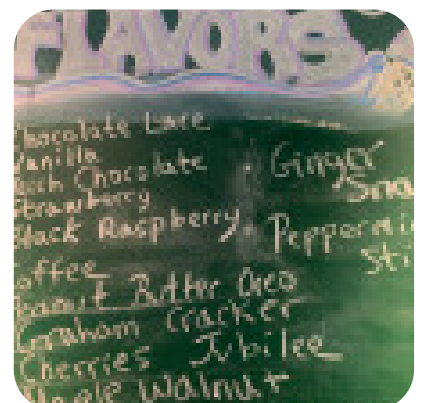 FLAVORS
Chocolate Lace
Vanilla
Dutch Chocolate
Strawberry
Black Raspberry
Coffee
Peanut Butter Oreo
Graham Cracker
Cherries Jubilee
Maple Walnut
Ginger
Sna
Peppermi
Sti